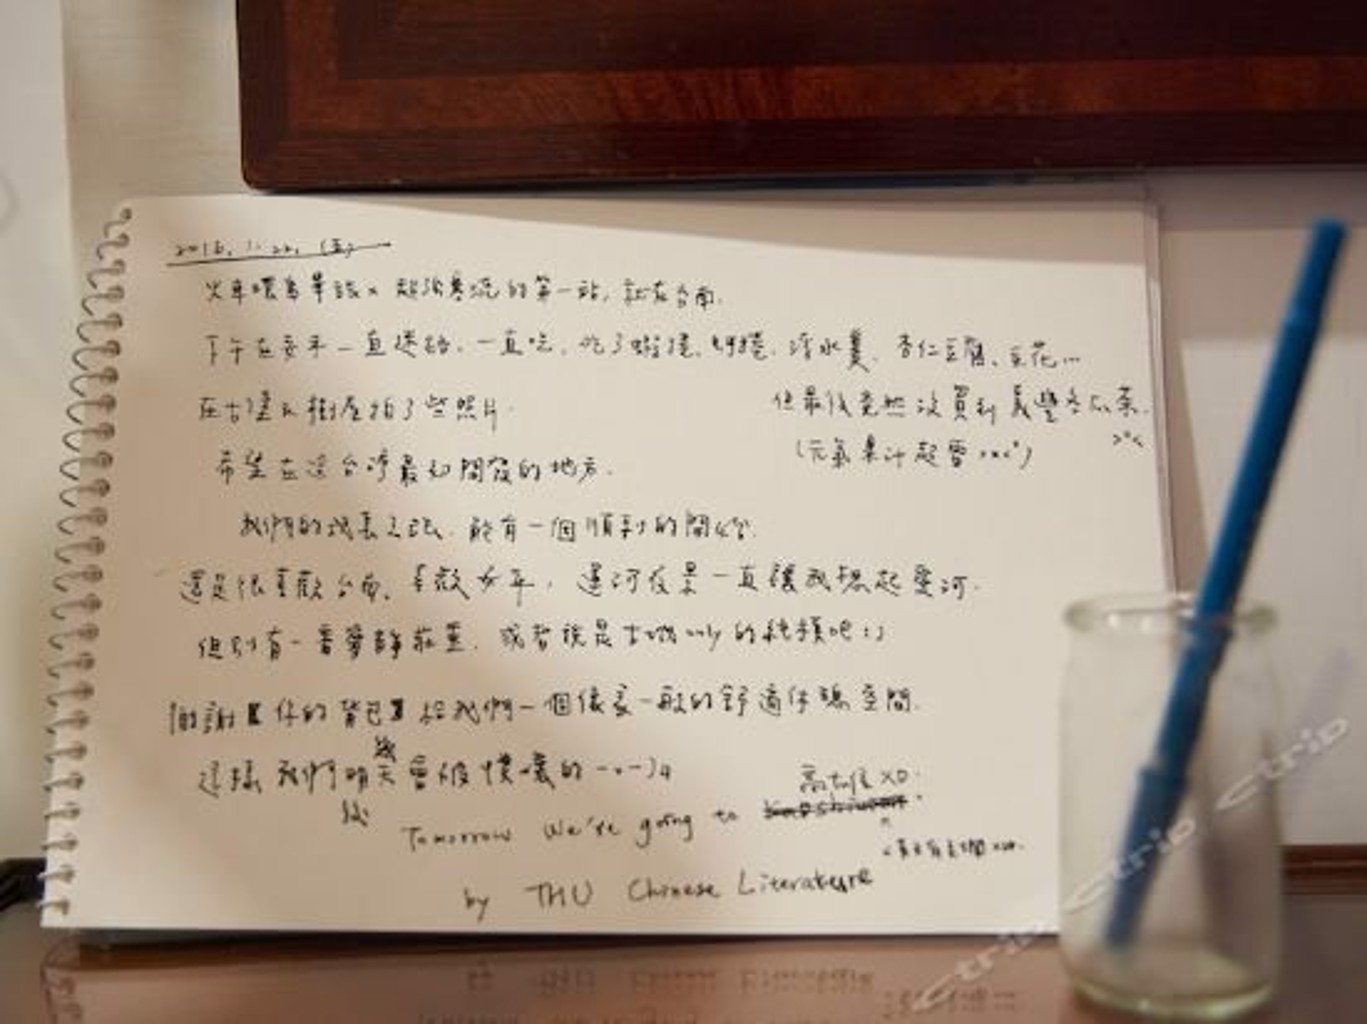 2016.1.22. (五)
火車環島畢旅 × 超強寒流的第一站, 就在台南.
下午在安平一直迷路、一直吃, 吃了蝦捲、蚵捲、浮水羹、杏仁豆腐、豆花...
在古堡和樹屋拍了些照片.
但最後竟然沒買到義豐冬瓜茶.
希望在這台灣最初開發的地方.
(元氣果汁起雲
我們的 能有一個順利的開始.
還是很喜歡台南、喜歡安平, 運河夜景一直讓我想起愛河.
但別有一番寧靜莊重, 或者說是古都 only 的純樸吧 :)
謝謝【你的背包】給我們一個像家一般的舒適休憩空間.
這樣我們明天會很
高雄 XD.
Tomorrow We're going to
by THU Chinese Literature
ctrip ctrip ctrip